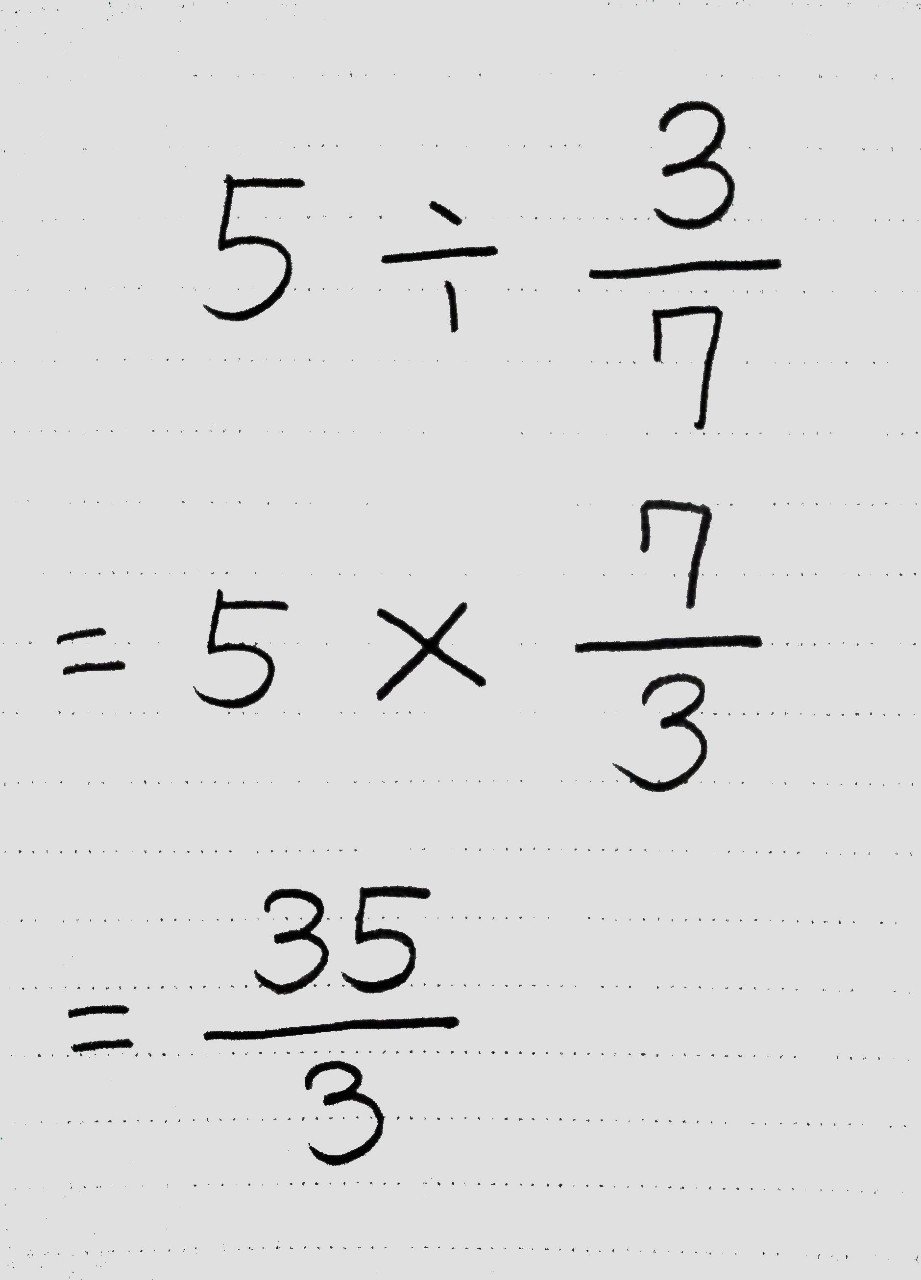 5 ÷ 3/7
= 5 × 7/3
= 35/3